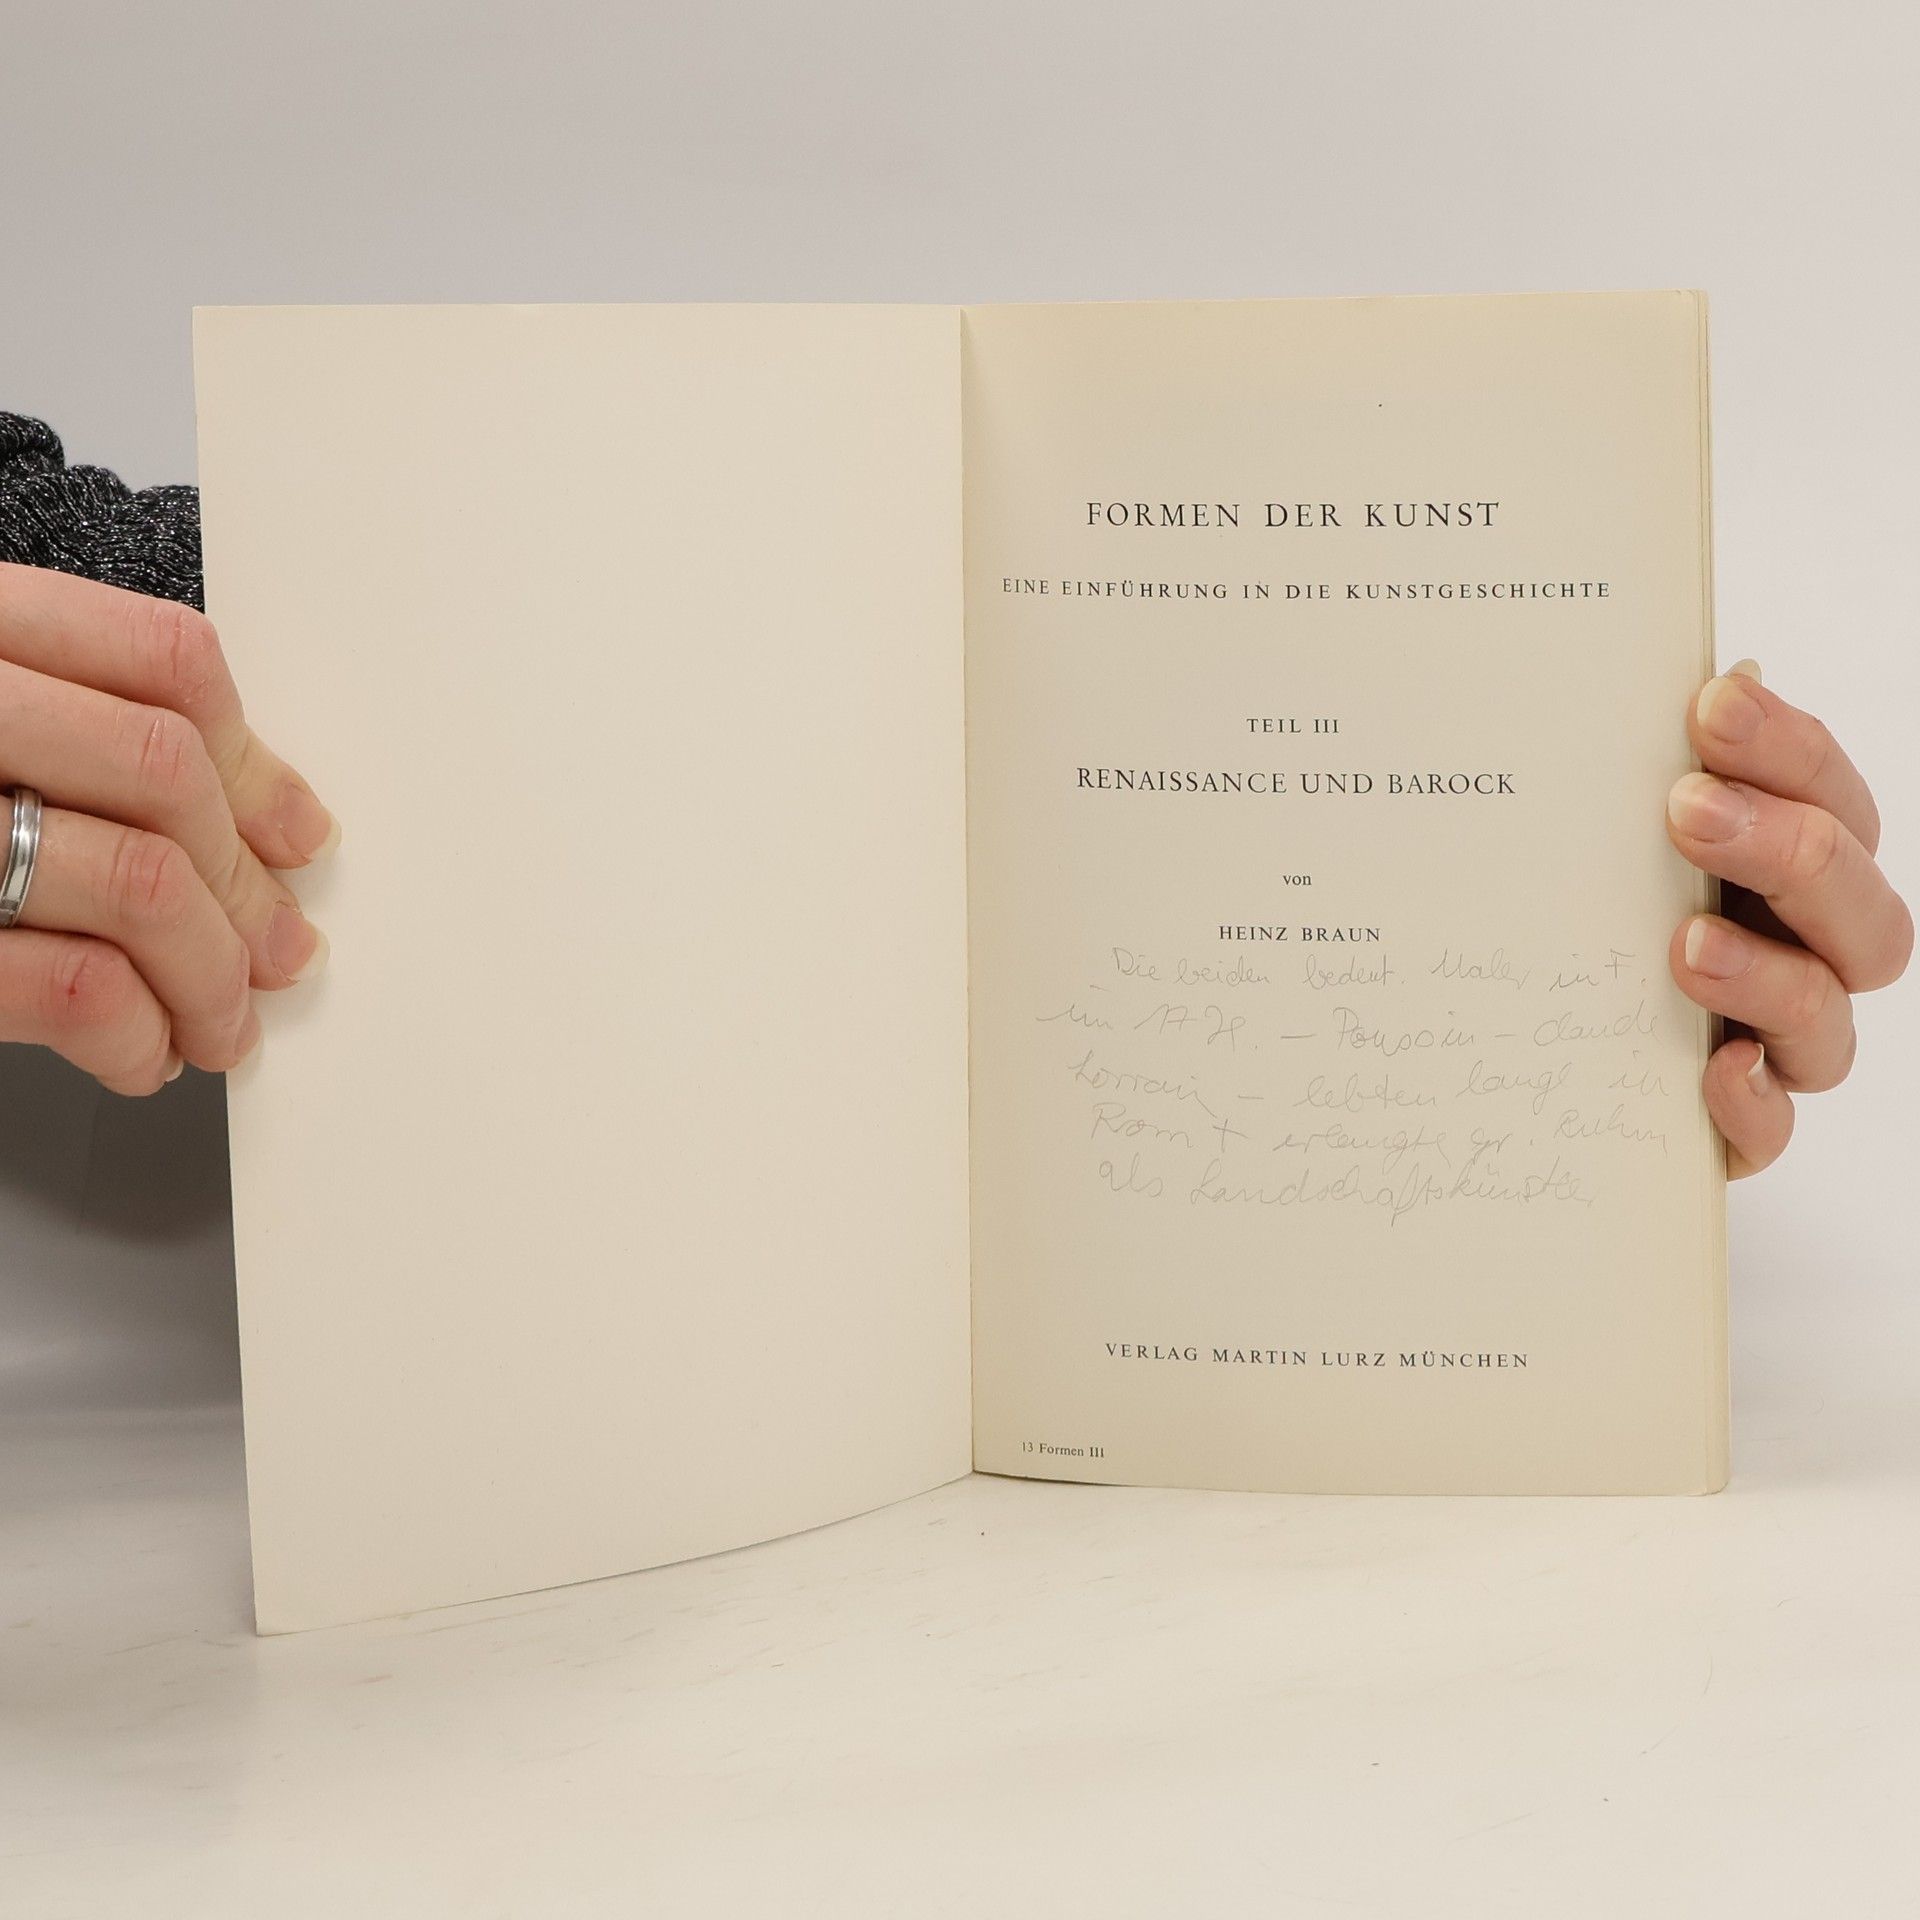 FORMEN DER KUNST
EINE EINFÜHRUNG IN DIE KUNSTGESCHICHTE
TEIL III
RENAISSANCE UND BAROCK
von
HEINZ BRAUN
Die beiden bedeut. Maler in F.
im 17 Jh. – Poussin – Claude
Lorrain – lebten lange in
Rom + erlangte gr. Ruhm
als Landschaftskünstler
VERLAG MARTIN LURZ MÜNCHEN
13 Formen III